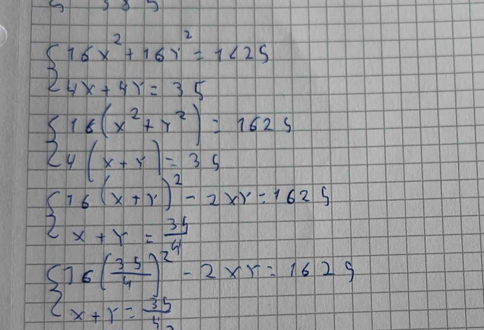 16x² + 16y² = 1625
4x + 4y = 35
16(x² + y²) = 1625
4(x + y) = 35
16(x + y)² - 2xy = 1625
x + y = 35/4
16(35/4)² - 2xy = 1625
x + y = 35/4